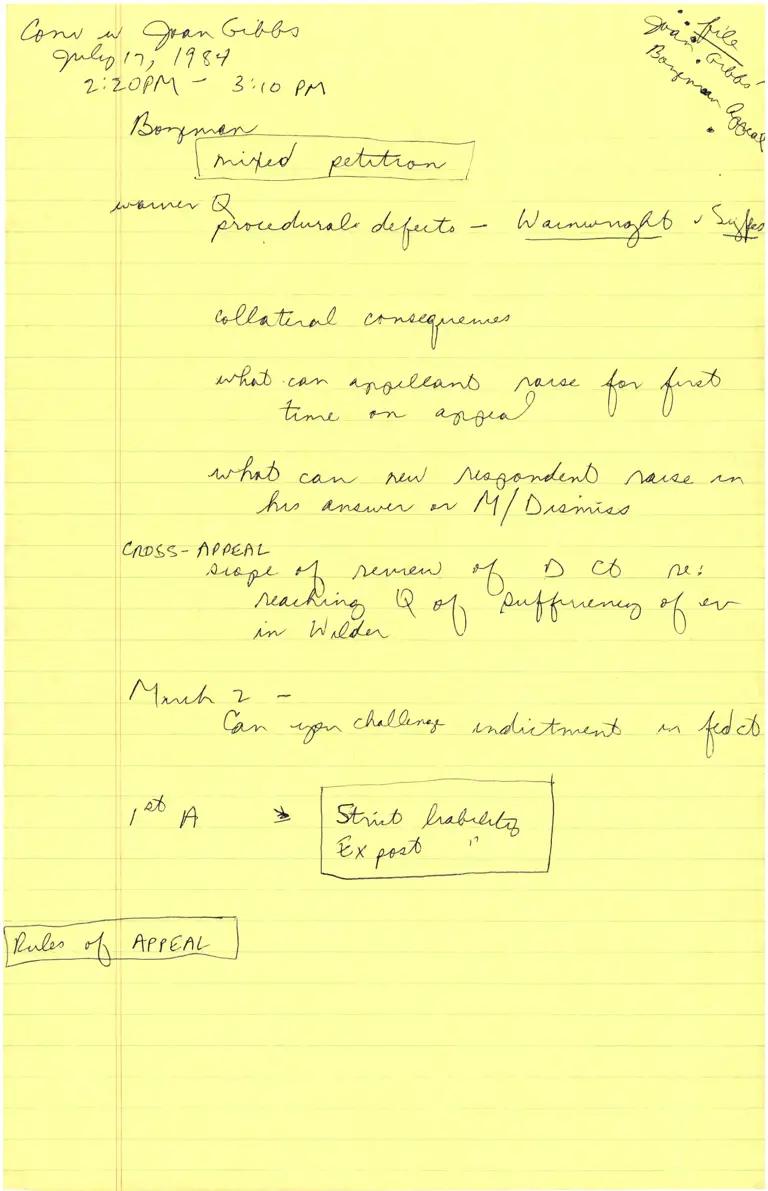 Conv w Joan Gibbs
July 17, 1984
2:20PM - 3:10 PM
file
Joan Gibbs
Bozeman Appeal
Bozeman
mixed petition
waiver Q
procedural defects - Wainwright v Sykes
collateral consequences
what can appellant raise for first
time on appeal
what can new respondent raise in
his answer or M/Dismiss
CROSS-APPEAL
scope of review of D Ct re:
reaching Q of sufficiency of ev
in Wilder
March 2 -
Can you challenge indictment in fed ct
1st A → Strict liability
Ex post "
Rules of APPEAL